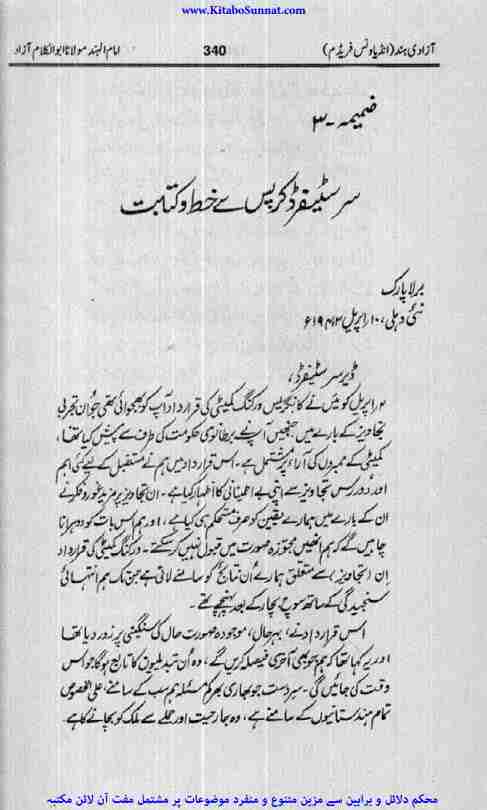 www.KitaboSunnat.com
آزادی ہند (انڈیا ونس فریڈم) 340 امام الہند مولانا ابوالکلام آزاد
ضمیمہ - ۳
سر سٹیفرڈ کرپس سے خط و کتابت
برلا پارک
نئی دہلی، ۱۰ اپریل ۱۹۴۲ء
ڈیر سر سٹیفرڈ،
۲ اپریل کو میں نے کانگریس ورکنگ کمیٹی کی قرار داد آپ کو بھجوائی تھی جو اُن تجربی
تجاویز کے بارے میں جنھیں آپ نے برطانوی حکومت کی طرف سے پیش کیا تھا،
کمیٹی کے ممبروں کی آراء پر مشتمل ہے۔ اس قرار داد میں ہم نے مستقبل کے لیے کئی اہم
اور دُور رس تجاویز سے اپنی بے اطمینانی کا اظہار کیا ہے۔ ان تجاویز پر مزید غور و فکر نے
ان کے بارے میں ہمارے یقین کو صرف مستحکم ہی کیا ہے، اور ہم اس بات کو دوہرانا
چاہیں گے کہ ہم انھیں مجوّزہ صورت میں قبول نہیں کر سکتے۔ ورکنگ کمیٹی کی قرار داد
اِن (تجاویز) سے متعلق ہمارے اُن نتائج کو سامنے لاتی ہے جن تک ہم انتہائی
سنجیدگی کے ساتھ سوچ بچار کے بعد پہنچے تھے۔
اس قرار داد نے، بہر حال، موجودہ صورت حال کی سنگینی پر زور دیا تھا
اور یہ کہا تھا کہ ہم جو بھی آخری فیصلہ کریں گے، وہ اُن تبدیلیوں کا تابع ہوگا جو اس
وقت کی جائیں گی۔ سرِ دست جو بھاری بھرکم مسئلہ ہم سب کے سامنے، علی الخصوص
تمام ہندستانیوں کے سامنے ہے، وہ جارحیت اور حملے سے ملک کو بچانے کا ہے۔
محکم دلائل و براہین سے مزین متنوع و منفرد موضوعات پر مشتمل مفت آن لائن مکتبہ